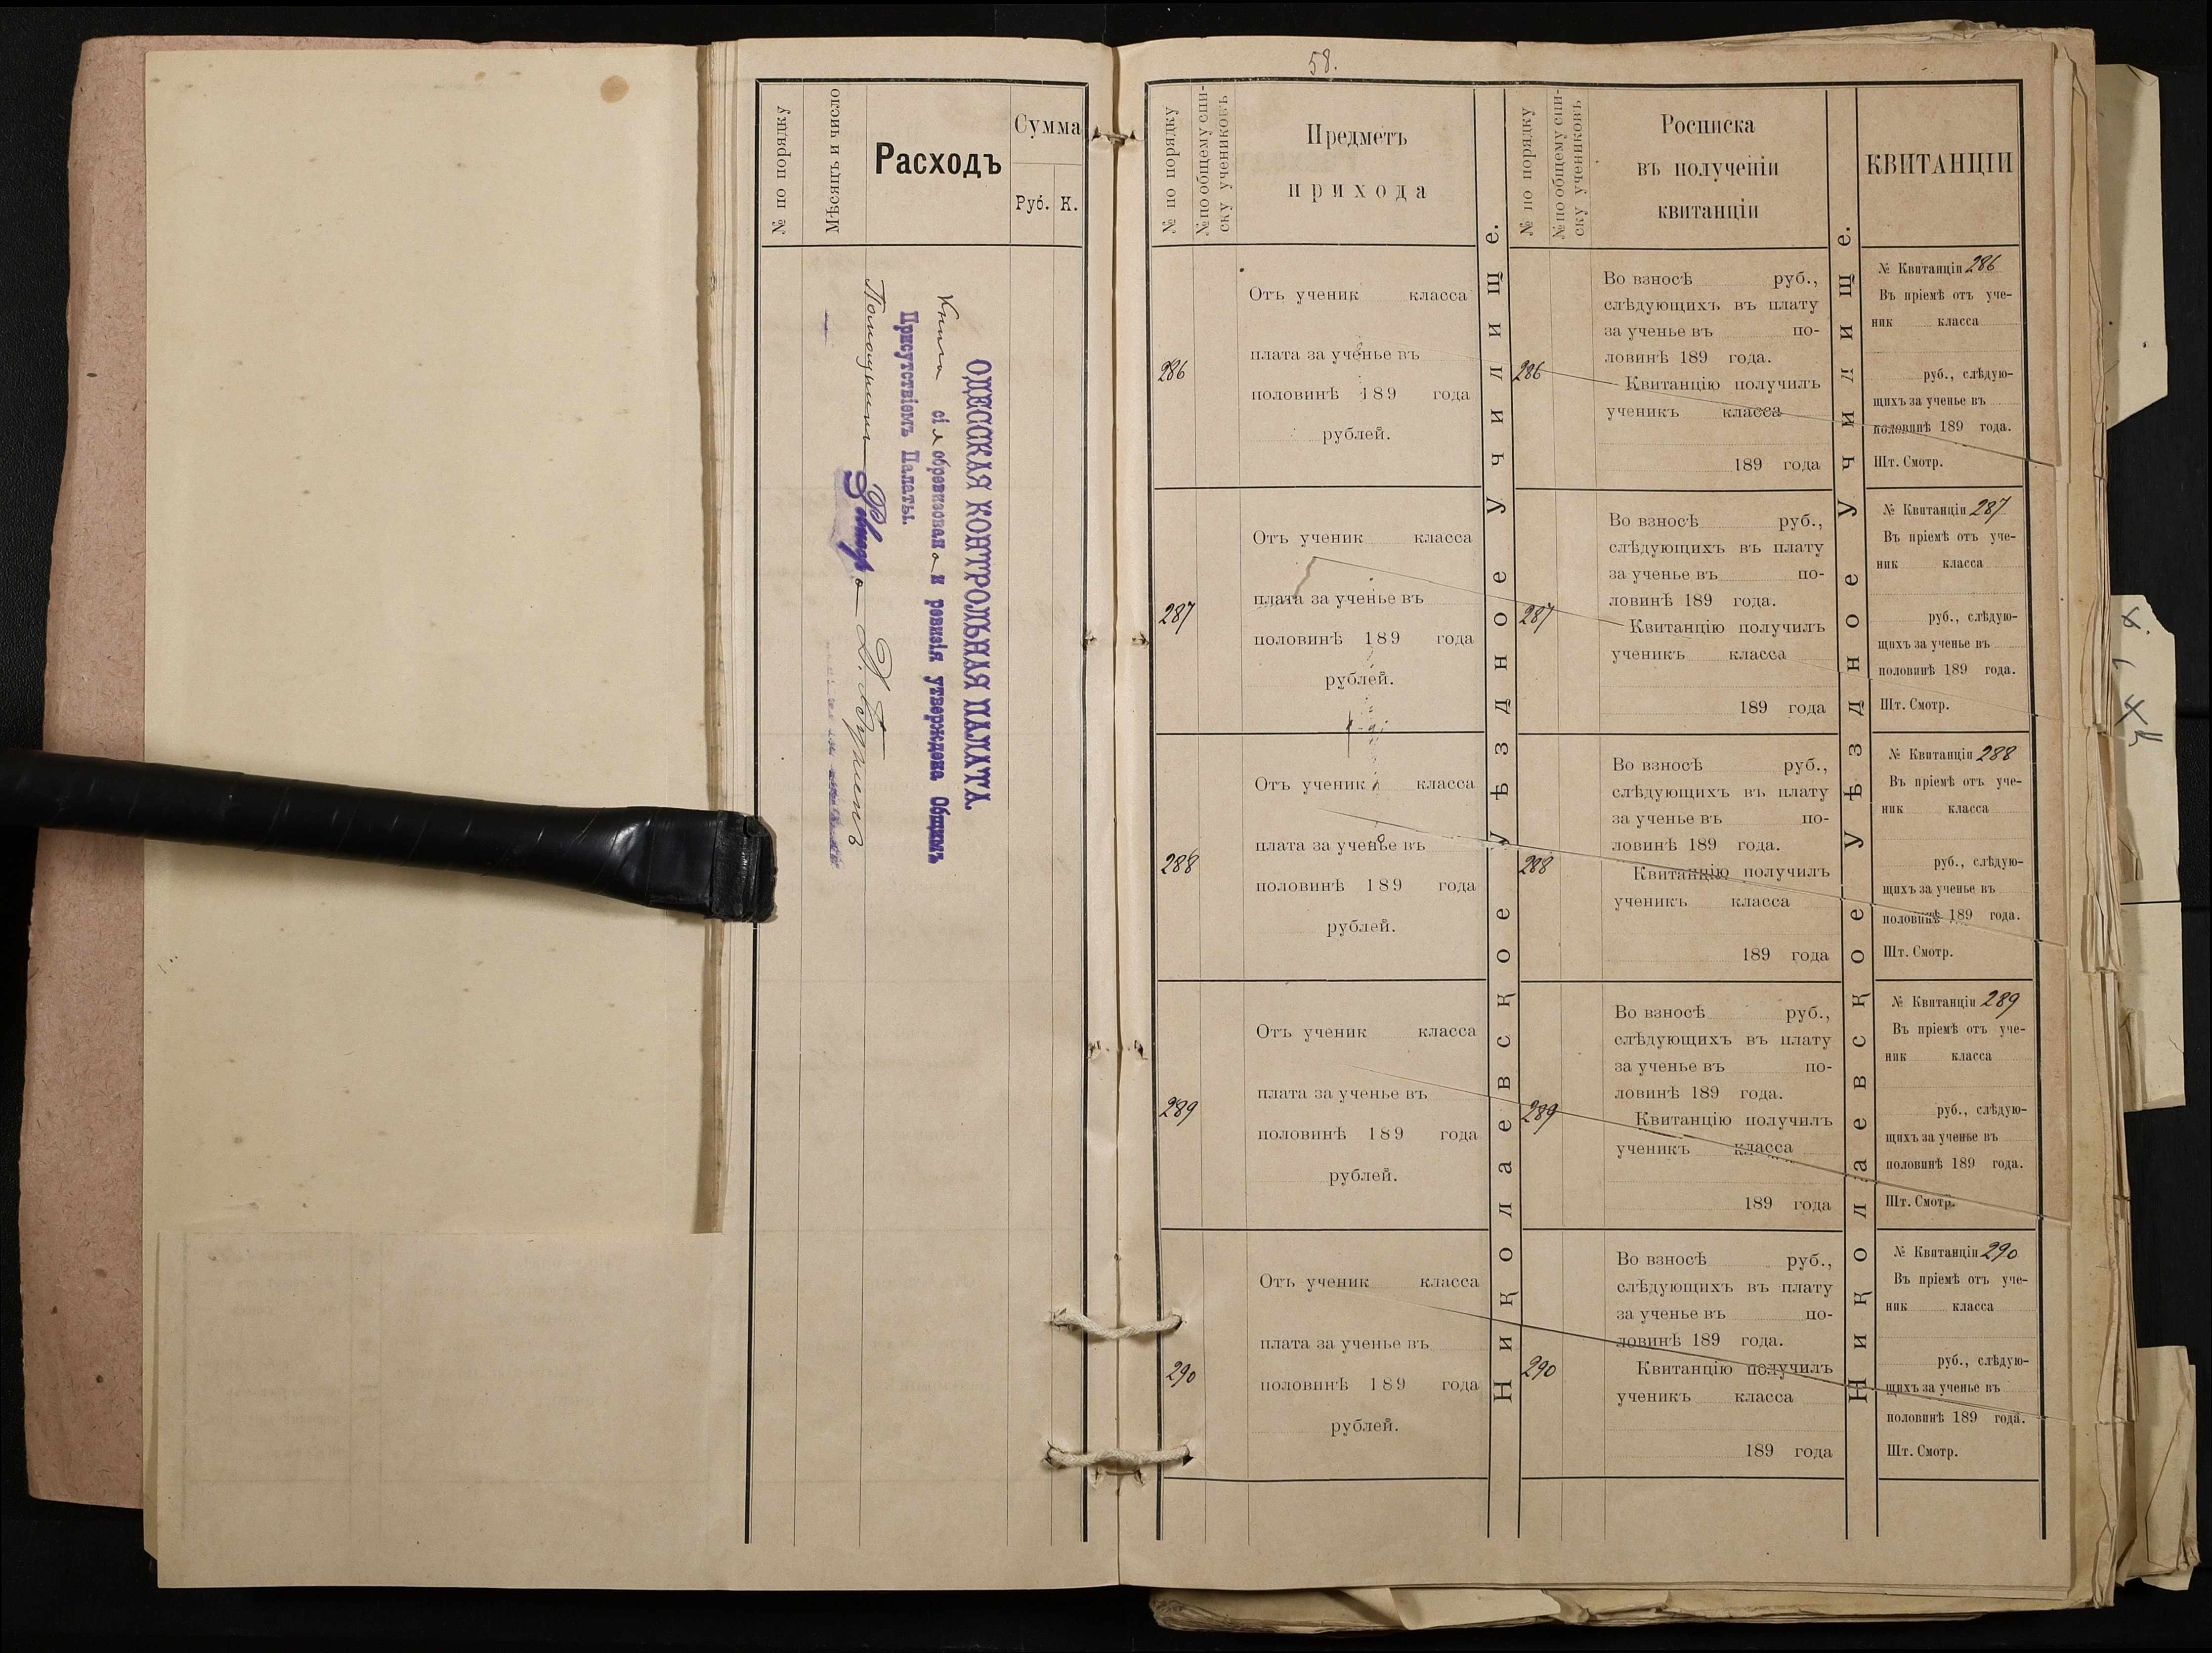 № по порядку
Мѣсяцъ и число
Расходъ
Сумма
Руб. К.
ОДЕССКАЯ КОНТРОЛЬНАЯ ПАЛАТА.
Книга сія обревизована и ревизія утверждена Общимъ
Присутствіемъ Палаты.
Помощникъ Ревизора
58.
№ по порядку
№ по общему спи-
ску учениковъ
Предметъ
прихода
№ по порядку
№ по общему спи-
ску учениковъ
Росписка
въ полученіи
квитанціи
КВИТАНЦІИ
Николаевское Уѣздное Училище.
Николаевское Уѣздное Училище.
286
Отъ ученик класса
плата за ученье въ
половинѣ 189 года
рублей.
286
Во взносѣ руб.,
слѣдующихъ въ плату
за ученье въ по-
ловинѣ 189 года.
Квитанцію получилъ
ученикъ класса
189 года
№ Квитанціи 286
Въ пріемѣ отъ уче-
ник класса
руб., слѣдую-
щихъ за ученье въ
половинѣ 189 года.
Шт. Смотр.
287
Отъ ученик класса
плата за ученье въ
половинѣ 189 года
рублей.
287
Во взносѣ руб.,
слѣдующихъ въ плату
за ученье въ по-
ловинѣ 189 года.
Квитанцію получилъ
ученикъ класса
189 года
№ Квитанціи 287
Въ пріемѣ отъ уче-
ник класса
руб., слѣдую-
щихъ за ученье въ
половинѣ 189 года.
Шт. Смотр.
288
Отъ ученик класса
плата за ученье въ
половинѣ 189 года
рублей.
288
Во взносѣ руб.,
слѣдующихъ въ плату
за ученье въ по-
ловинѣ 189 года.
Квитанцію получилъ
ученикъ класса
189 года
№ Квитанціи 288
Въ пріемѣ отъ уче-
ник класса
руб., слѣдую-
щихъ за ученье въ
половинѣ 189 года.
Шт. Смотр.
289
Отъ ученик класса
плата за ученье въ
половинѣ 189 года
рублей.
289
Во взносѣ руб.,
слѣдующихъ въ плату
за ученье въ по-
ловинѣ 189 года.
Квитанцію получилъ
ученикъ класса
189 года
№ Квитанціи 289
Въ пріемѣ отъ уче-
ник класса
руб., слѣдую-
щихъ за ученье въ
половинѣ 189 года.
Шт. Смотр.
290
Отъ ученик класса
плата за ученье въ
половинѣ 189 года
рублей.
290
Во взносѣ руб.,
слѣдующихъ въ плату
за ученье въ по-
ловинѣ 189 года.
Квитанцію получилъ
ученикъ класса
189 года
№ Квитанціи 290
Въ пріемѣ отъ уче-
ник класса
руб., слѣдую-
щихъ за ученье въ
половинѣ 189 года.
Шт. Смотр.